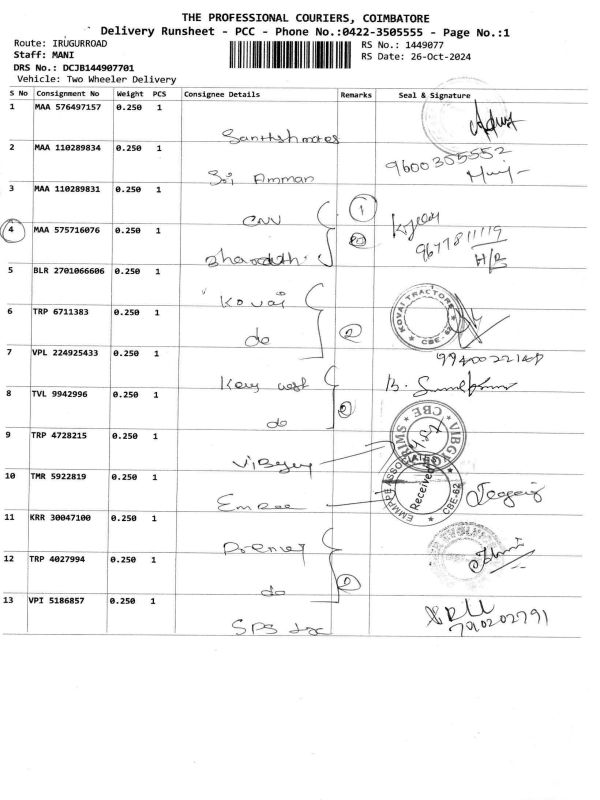 THE PROFESSIONAL COURIERS, COIMBATORE
Delivery Runsheet - PCC - Phone No.:0422-3505555 - Page No.:1
Route: IRUGURROAD RS No.: 1449077
Staff: MANI RS Date: 26-Oct-2024
DRS No.: DCJB144907701
Vehicle: Two Wheeler Delivery
S No Consignment No Weight PCS Consignee Details Remarks Seal & Signature
1 MAA 576497157 0.250 1
2 MAA 110289834 0.250 1 9600305552
Sri Amman
3 MAA 110289831 0.250 1
CNN 1
4 MAA 575716076 0.250 1 9677811119
H/R
5 BLR 2701066606 0.250 1
Kovai
KOVAI TRACTORS CBE-62
6 TRP 6711383 0.250 1
do 2
7 VPL 224925433 0.250 1
8 TVL 9942996 0.250 1
do 2
9 TRP 4728215 0.250 1
CBE
10 TMR 5922819 0.250 1
EMMAPE ASSOCIATES CBE-62
Received
11 KRR 30047100 0.250 1
Premier
12 TRP 4027994 0.250 1
do
13 VPI 5186857 0.250 1
SPS